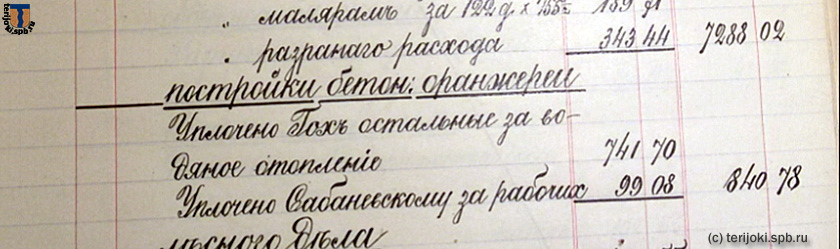 „ малярамъ за 122 д. x
„ разранаго расхода 343 44 7288 02
постройки бетон: оранжереи
Уплочено Гохъ остальные за во-
дяное отопленіе 741 70
Уплочено Сабаневскому за рабочих 99 08 840 78
лѣсного дѣла
terijoki.spb.ru
(c) terijoki.spb.ru